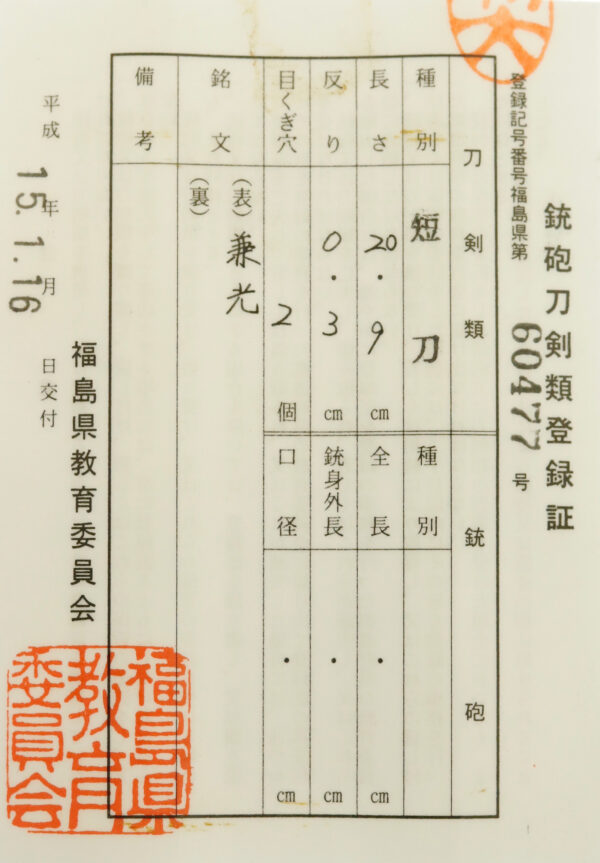 銃砲刀剣類登録証
登録記号番号福島県第 60477 号
刀剣類
種別 短刀
長さ 20.9 cm
反り 0.3 cm
目くぎ穴 2 個
銘文 (表) 兼光
(裏)
備考
銃砲
種別
全長 . cm
銃身外長 . cm
口径 . cm
平成 15年 1.月 16 日交付
福島県教育委員会
福島県
教育
委員会